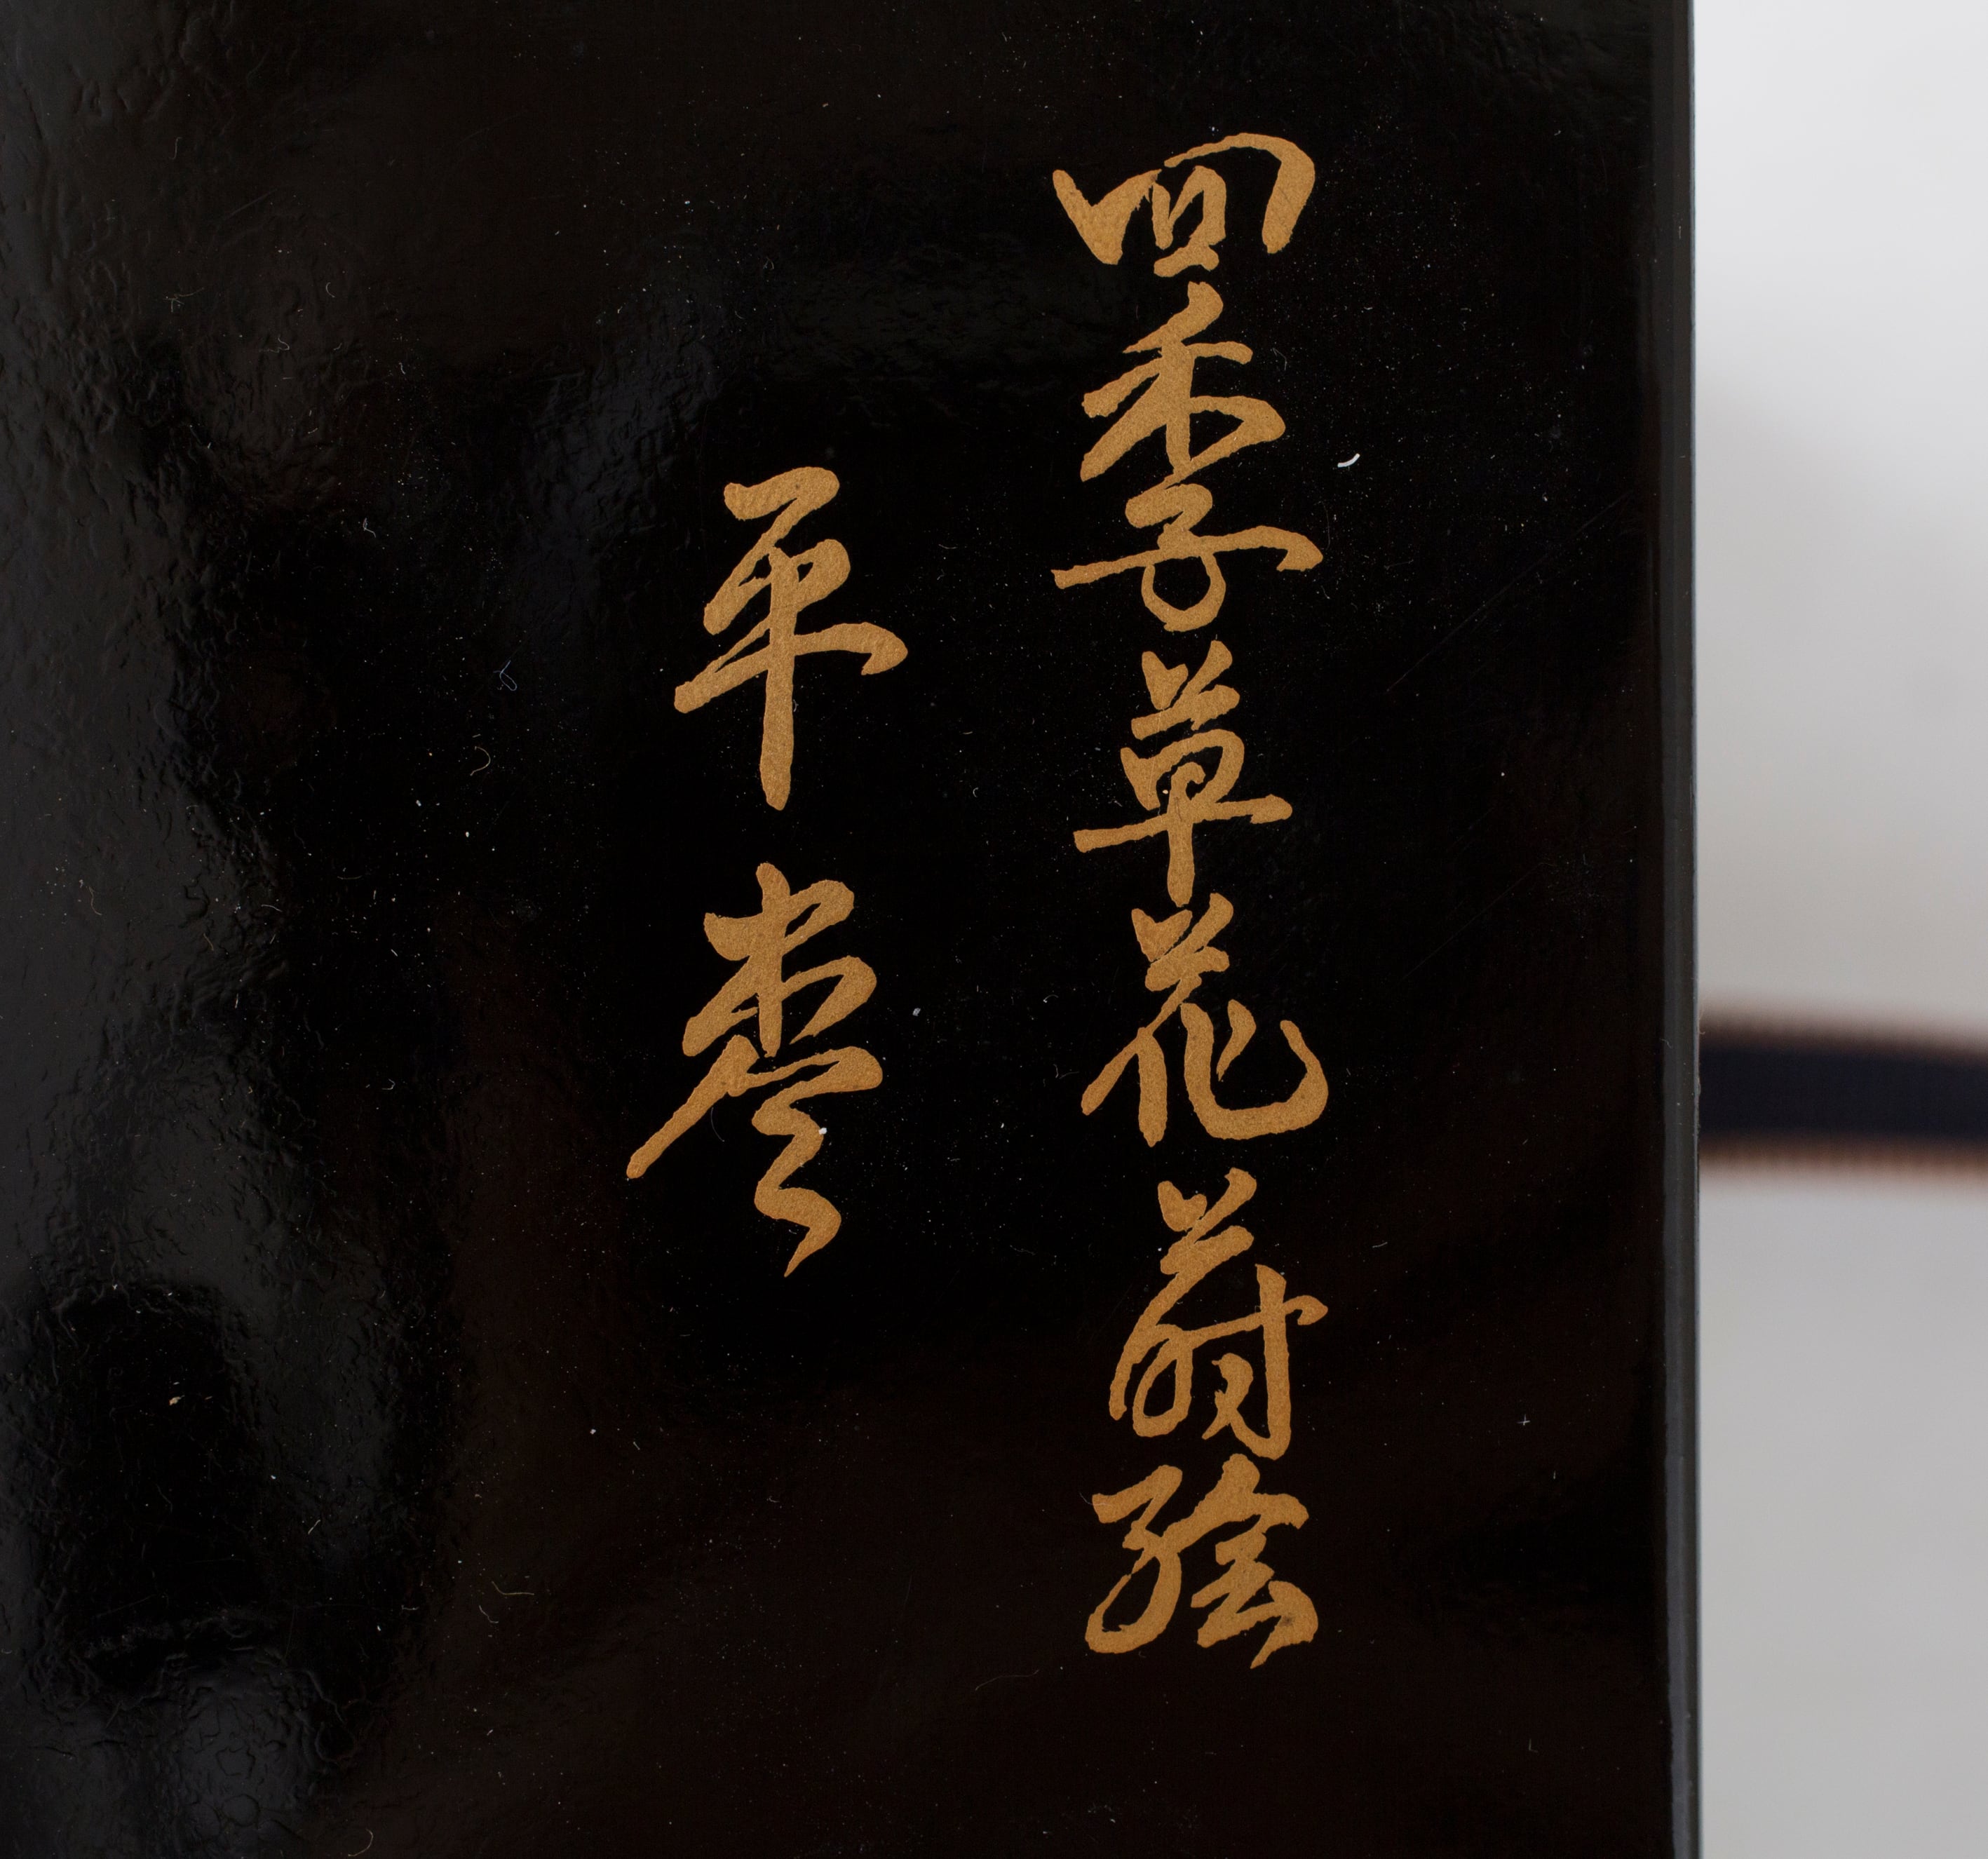 四季草花蒔絵
平棗